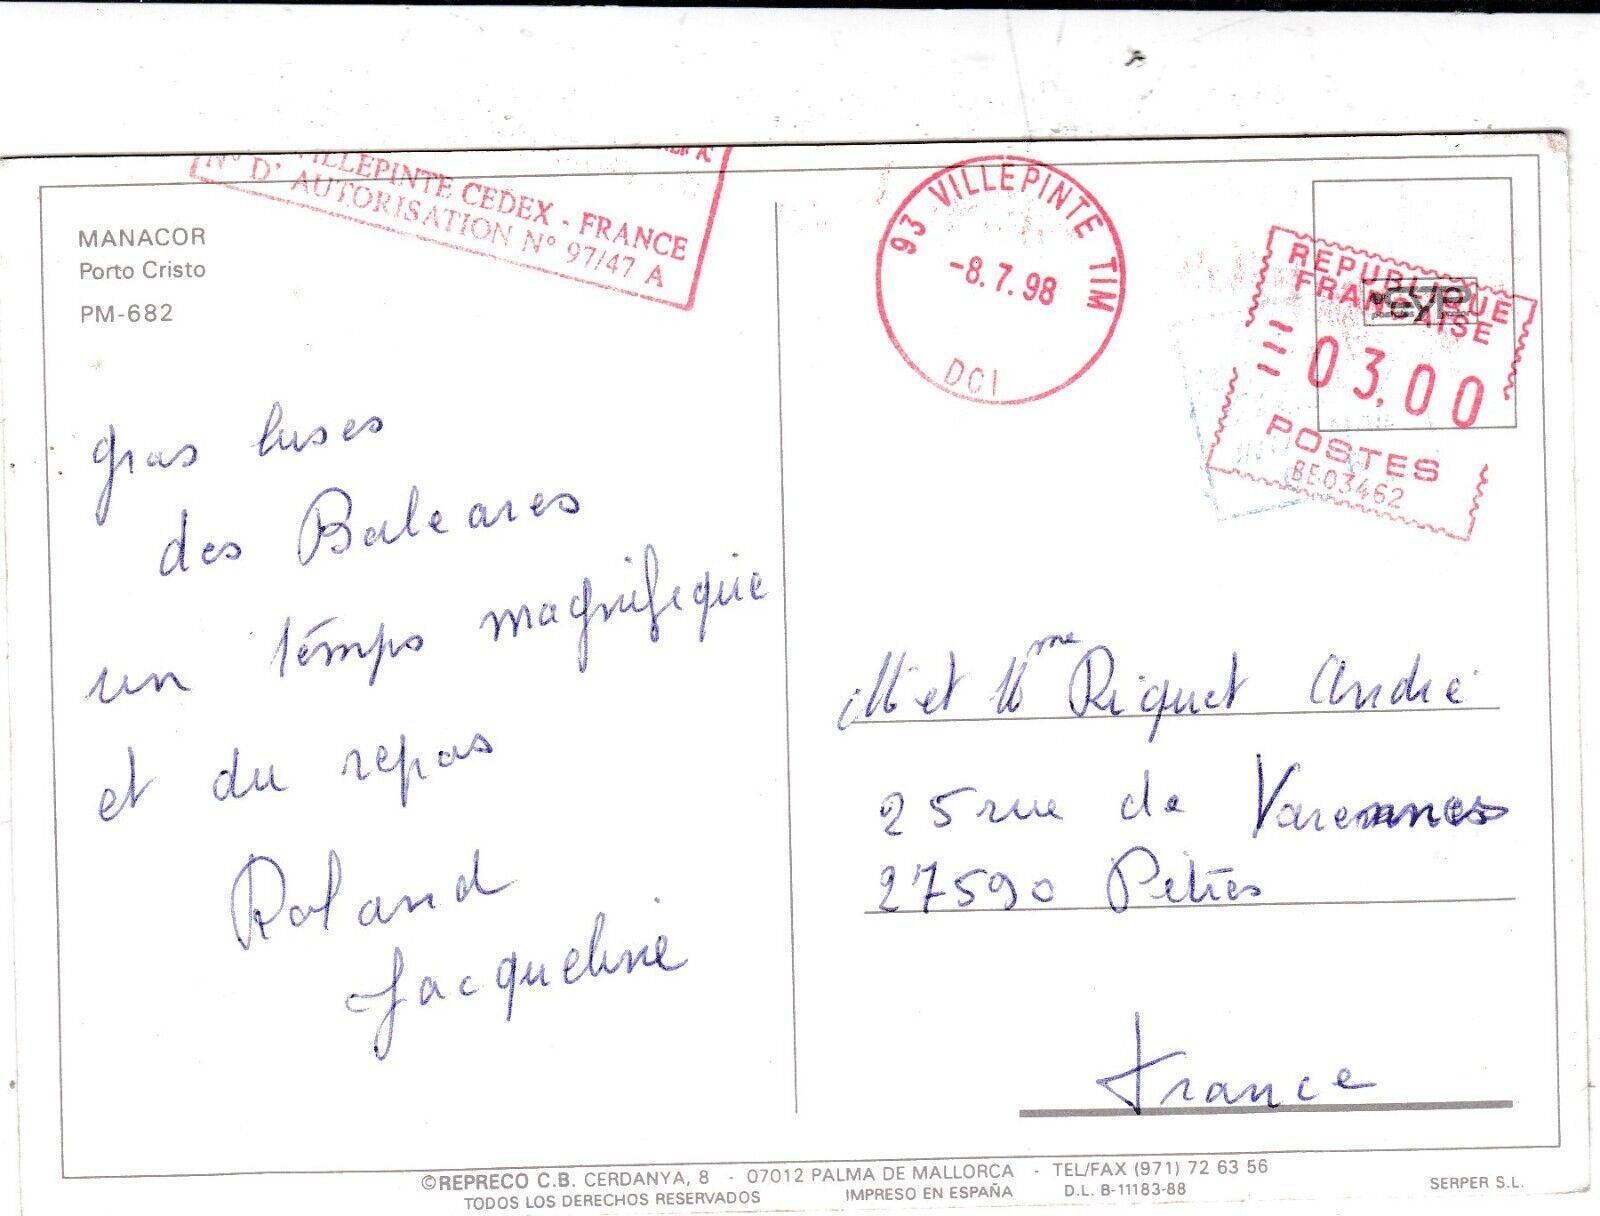 VILLEPINTE CEDEX - FRANCE
N° D' AUTORISATION N° 97/47 A
MANACOR
Porto Cristo
PM-682
gras luses
des Baleares
un temps magnifique
et du repas
Roland
Jacqueline
93 VILLEPINTE TIM
-8.7.98
DCI
REPUBLIQUE
FRANCAISE
=03,00
POSTES
BE03462
M et Mme Riquet André
25 rue de Varennes
27590 Pitres
France
©REPRECO C.B. CERDANYA, 8 - 07012 PALMA DE MALLORCA - TEL/FAX (971) 72 63 56
TODOS LOS DERECHOS RESERVADOS IMPRESO EN ESPAÑA D.L. B-11183-88
SERPER S.L.